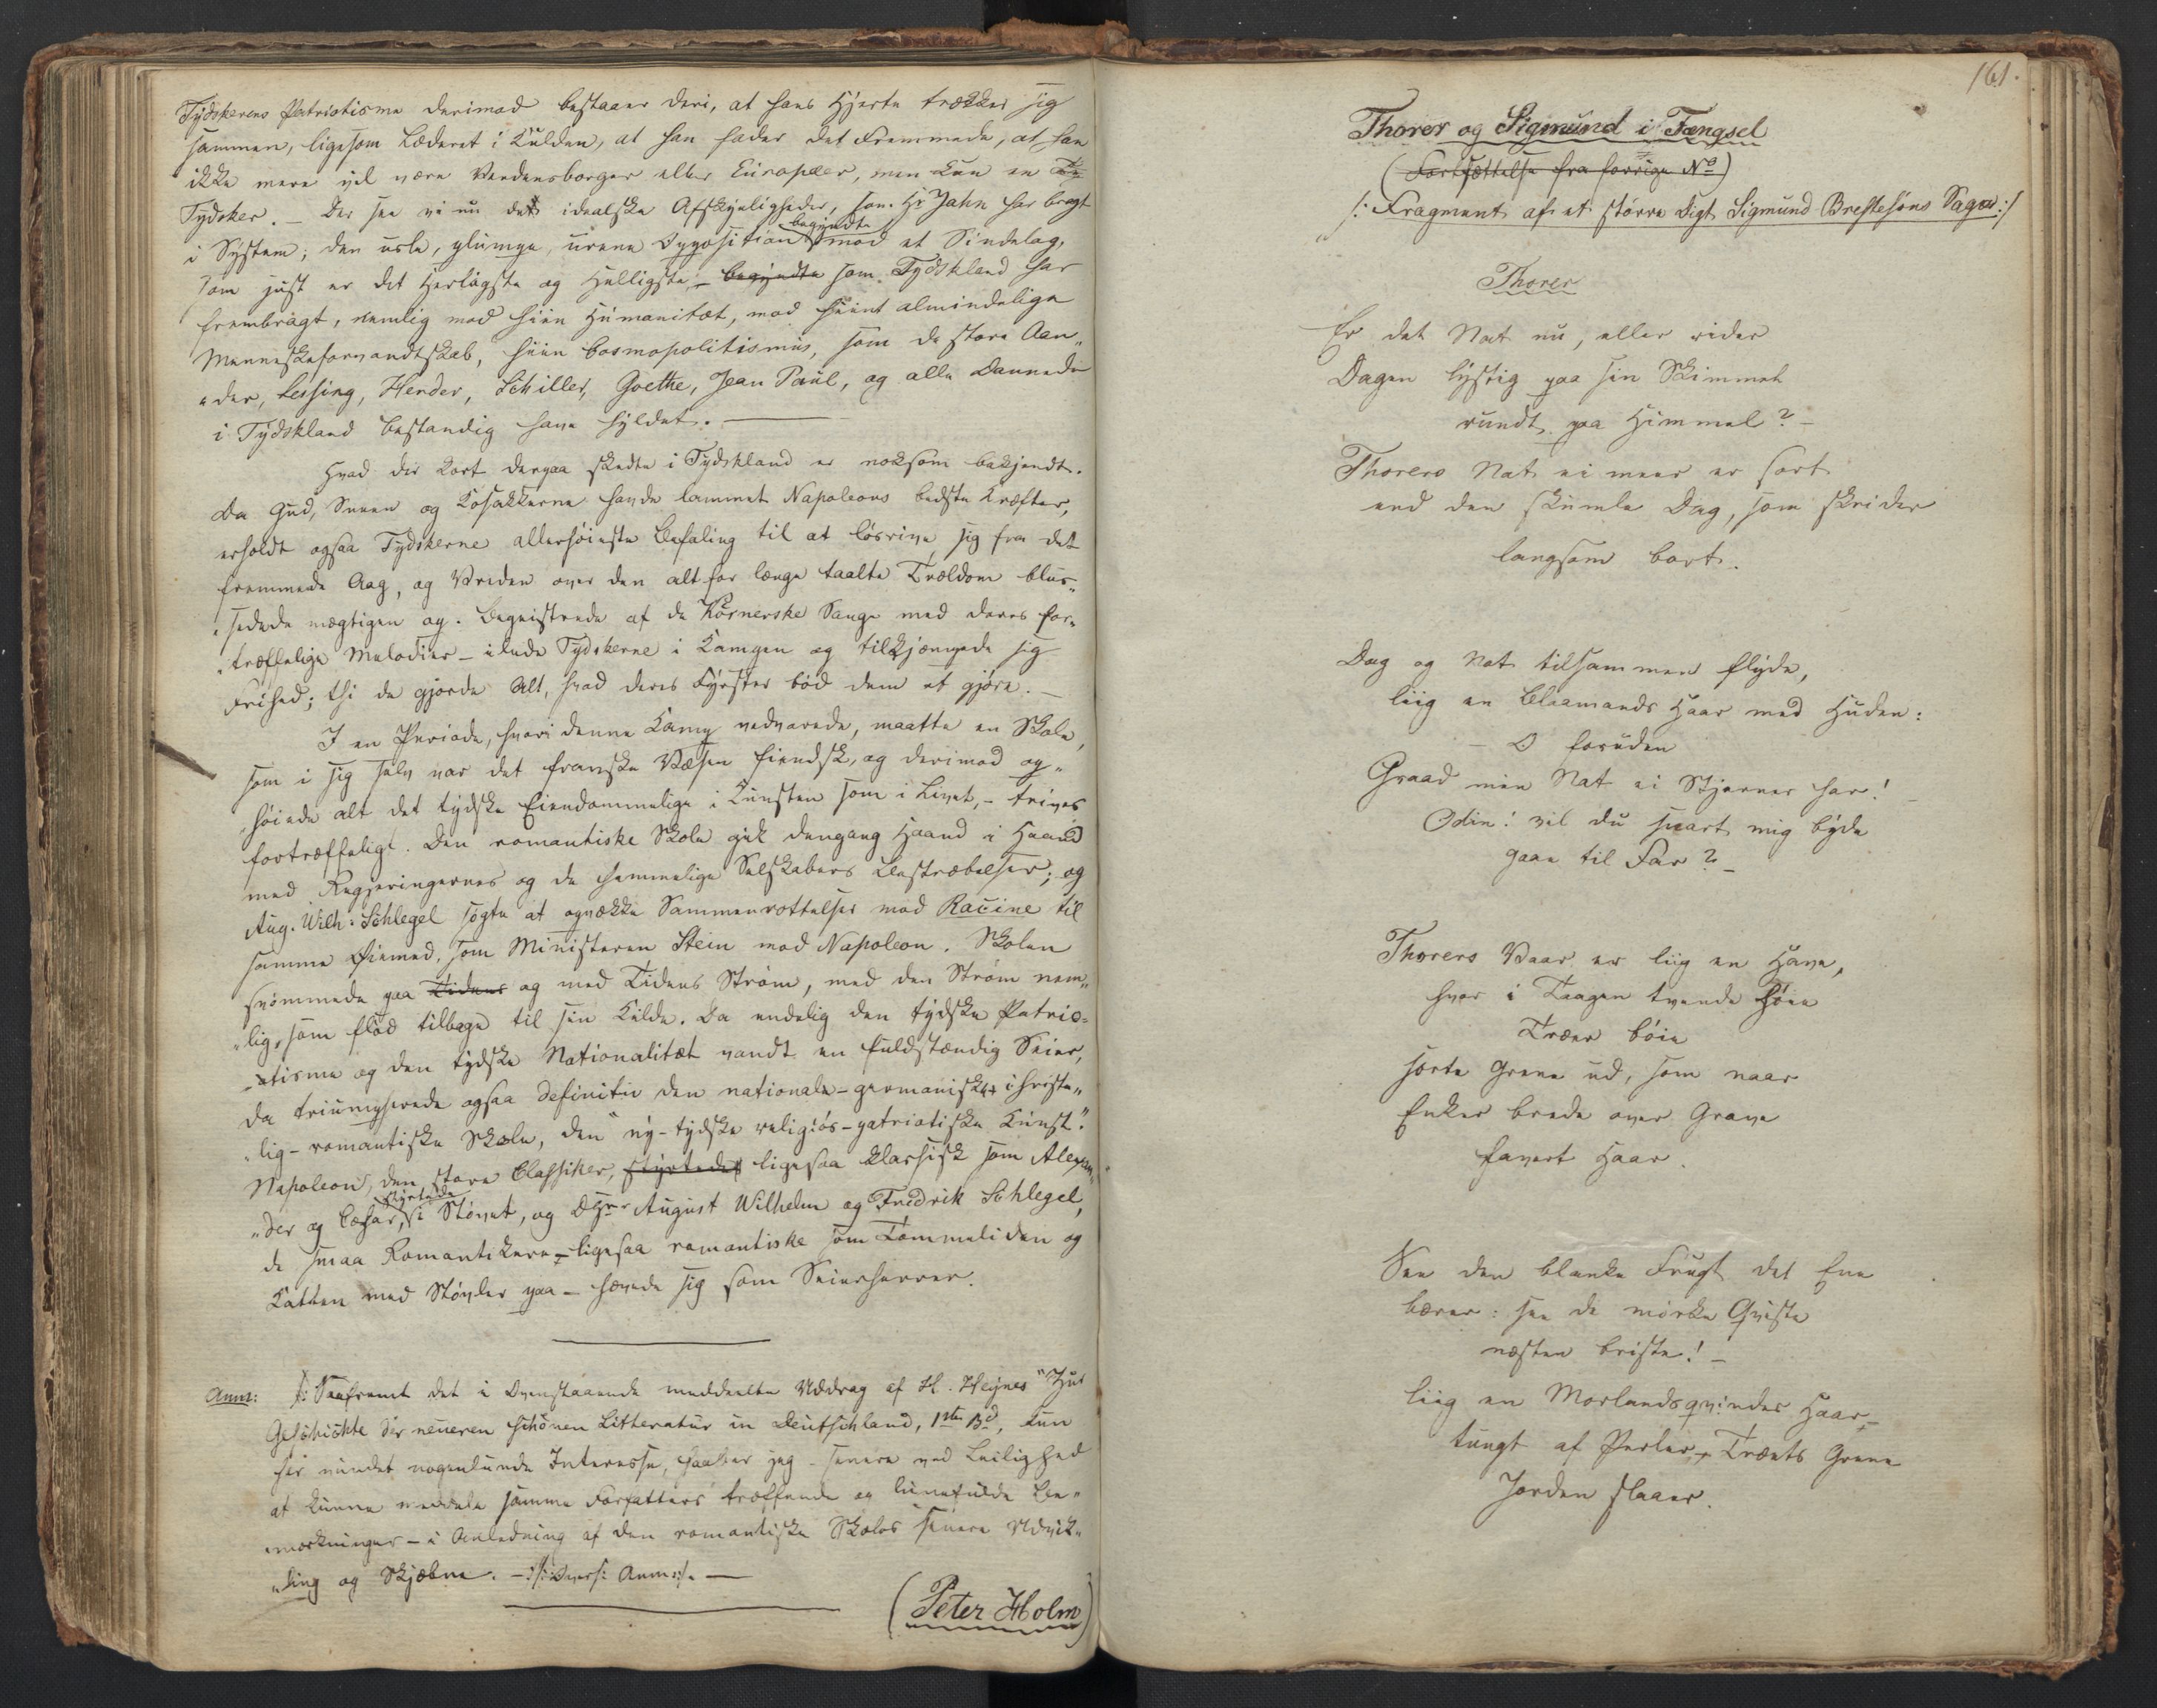 Tydskerens Patriotisme derimod bestaaer deri, at hans Hjerte trækker sig
sammen, ligesom Læderet i Kulden, at han hader det Fremmede, at han
ikke mere vil være Verdensborger eller Europæer, men kun en
Tydsker. – Der see vi nu det idealske Afskyeligheder, som Hr Jahn har bragt
i System; den usle, plumpe, urene Opposition begyndte mod et Sindelag,
som just er det Herligste og Helligste, – begyndte som Tydskland har
frembragt, nemlig mod hiin Humanitæt, mod hiint almindelige
Menneskeforvandtskab, hiin Cosmopolitismus, som de store Aan„
„der, Lessing, Herder, Schiller, Goethe, Jean Paul, og alle Dannede
i Tydskland bestandig have hyldet. —
Hvad der kort derpaa skedte i Tydskland er noksom bekjendt.
Da Gud, Sneen og Kosakkerne havde lammet Napoleons bedste Kræfter,
erholdt ogsaa Tydskerne allerhöieste Befaling til at lösrive sig fra det
fremmede Aag, og Vreden over den alt for længe taalte Trældom blus„
„sedede mægtigen op. Begeistrede af de Körnerske Sange med deres for„
„træffelige Melodier – ilede Tydskerne i Kampen og tilkjæmpede sig
Frihed; thi de gjorde Alt, hvad deres Fyrster böd dem at gjöre. –
I en Periode, hvori denne Kamp vedvarede, maatte en Skole,
som i sig selv var det franske Væsen fiendsk, og derimod op„
„höiede alt det tydske Eiendommelige i Kunsten som i Livet, – trives
fortræffeligt. Den romantiske Skole gik dengang Haand i Haand
med Regjeringernes og de hemmelige Selskabers Bestræbelser; og
Aug. Wilh: Schlegel sögte at opvække Sammenrottelser mod Racine til
samme Öiemed, som Ministeren Stein mod Napoleon. Skolen
svömmede paa Tidens og med Tidens Ström, med den Ström nem„
„lig, som flöd tilbage til sin Kilde. Da endelig den tydske Patrio=
=tisme og den tydske Nationalitæt vandt en fuldstændig Seier,
da triumpherede ogsaa definitiv den nationale-germaniske christe„
„lig-romantiske Skole, den "ny-tydske religiös-patriotiske Kunst."
Napoleon, den store Classiker, styrtede ligesaa klassisk som Alexan„
„der og Cæsar, styrtede i Stövet, og DHrr August Wilhelm og Fredrik Schlegel,
de smaa Romantikere – ligesaa romantiske som Tommeliden og
Katten med Stövler paa – hævede sig som Seiersherrer.
Anm: Saafremt det i Ovenstaaende meddeelte Uddrag af H. Heines "Zur
Geschichte der neueren schönen Litteratur in Deutschland, 1ster Bd, kun
har vundet nogenlunde Interesse, haaber jeg – senere ved Leilighed
at kunne meddele samme Forfatters træffende og lunefulde Be„
„mærkninger – i Anledning af den romantiske Skoles senere Udvik„
„ling og Skjæbne. – Overs: Anm: –
(Peter Holm)
161.
Thorer og Sigmund i Fængsel
(Fortsættelse fra forrige No)
/: Fragment af et större Digt Sigmund Brestesöns Saga :/
Thorer
Er det Nat nu, eller rider
Dagen lystig paa sin Skimmel
rundt paa Himmel? –
Thorers Nat ei meer er sort
end den skumle Dag, som skrider
langsom bort.
Dag og Nat tilsammen flyde,
liig en Blaamands Haar med Huden:
– O foruden
Graad min Nat ei Stjerner har! –
Odin! vil du snart mig byde
gaae til Far? –
Thorers Vaar er liig en Have,
hvor i Taagen tvende höie
Træer böie
sorte Grene ud, som naar
Enker brede over Grave
favert Haar.
See den blanke Frugt det Ene
bærer: see de mörke Qviste
næsten briste! –
liig en Morlandsqvindes Haar –
tungt af Perler – Træets Grene
Jorden slaaer.